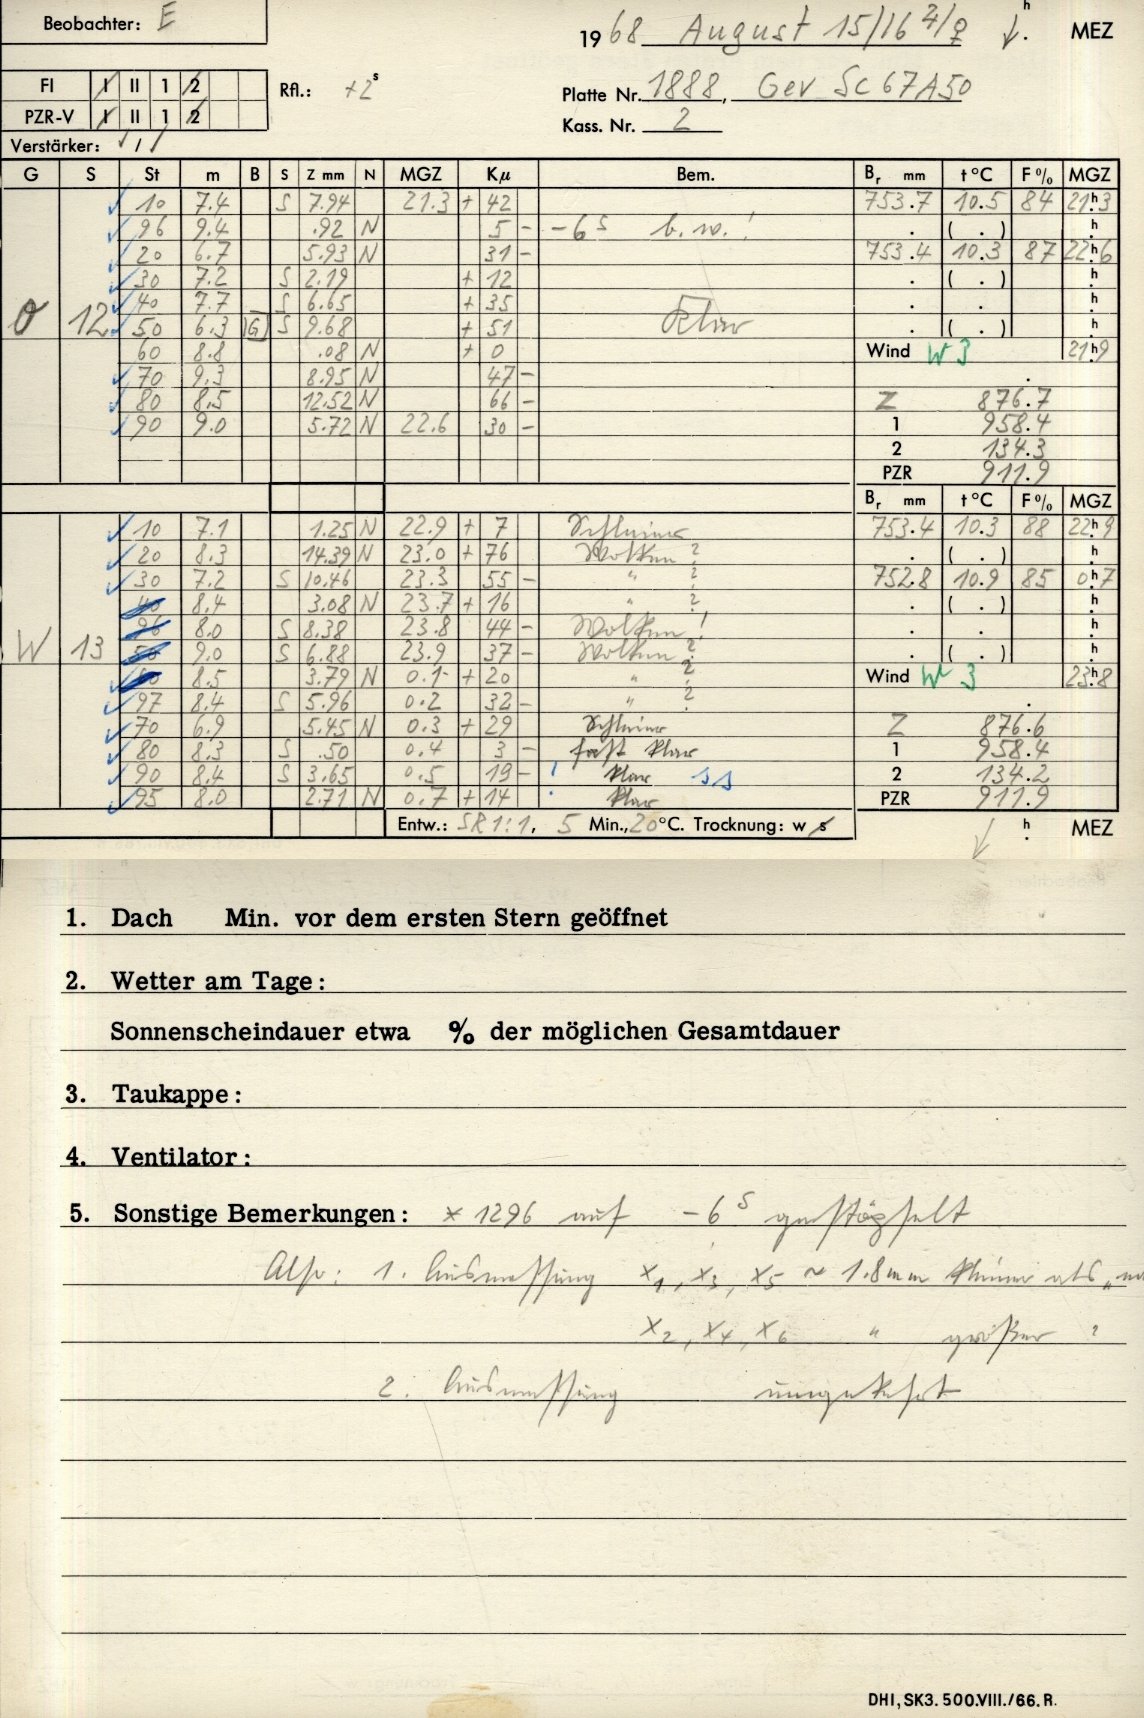 Beobachter: E
1968 August 15/16 ♃/♀ h MEZ
FI I II 1 2 Rfl.: +2s
Platte Nr. 1888, Gev Sc 67A50
PZR-V I II 1 2
Kass. Nr. 2
Verstärker: I
G S St m B S Z mm N MGZ Kμ Bem. Br mm t °C F % MGZ
10 7.4 S 7.94 21.3 + 42 753.7 10.5 84 21h3
96 9.4 .92 N 5 - -6s b.w.! . ( . ) h
20 6.7 5.93 N 31 - 753.4 10.3 87 22h6
30 7.2 S 2.19 + 12 . ( . ) h
40 7.7 S 6.65 + 35 . . h
O 12 50 6.3 (G) S 9.68 + 51 klar . ( . ) h
60 8.8 .08 N + 0 Wind W 3 21h9
70 9.3 8.95 N 47 - .
80 8.5 12.52 N 66 - Z 876.7
90 9.0 5.72 N 22.6 30 - 1 958.4
2 134.3
PZR 911.9
Br mm t °C F % MGZ
10 7.1 1.25 N 22.9 + 7 Schleier 753.4 10.3 88 22h9
20 8.3 14.39 N 23.0 + 76 Wolken ? . ( . ) h
30 7.2 S 10.46 23.3 55 - " ? 752.8 10.9 85 0h7
40 8.4 3.08 N 23.7 + 16 " ? . ( . ) h
96 8.0 S 8.38 23.8 44 - Wolken ! . . h
W 13 50 9.0 S 6.88 23.9 37 - Wolken ? . ( . ) h
60 8.5 3.79 N 0.1 + 20 " ? Wind W 3 23h8
97 8.4 S 5.96 0.2 32 - " ? .
70 6.9 5.45 N 0.3 + 29 Schleier Z 876.6
80 8.3 S .50 0.4 3 - fast klar 1 958.4
90 8.4 S 3.65 0.5 19 - ! klar ss 2 134.2
95 8.0 2.71 N 0.7 + 14 klar PZR 911.9
Entw.: SR 1:1, 5 Min., 20°C. Trocknung: w s h MEZ
1. Dach Min. vor dem ersten Stern geöffnet
2. Wetter am Tage:
Sonnenscheindauer etwa % der möglichen Gesamtdauer
3. Taukappe:
4. Ventilator:
5. Sonstige Bemerkungen: * 1296 auf -6s gestöpselt
Also: 1. Ausmessung x1, x3, x5 ~ 1.8mm kleiner als
x2, x4, x6 " größer ?
2. Ausmessung umgekehrt
DHI, SK3. 500.VIII./66. R.